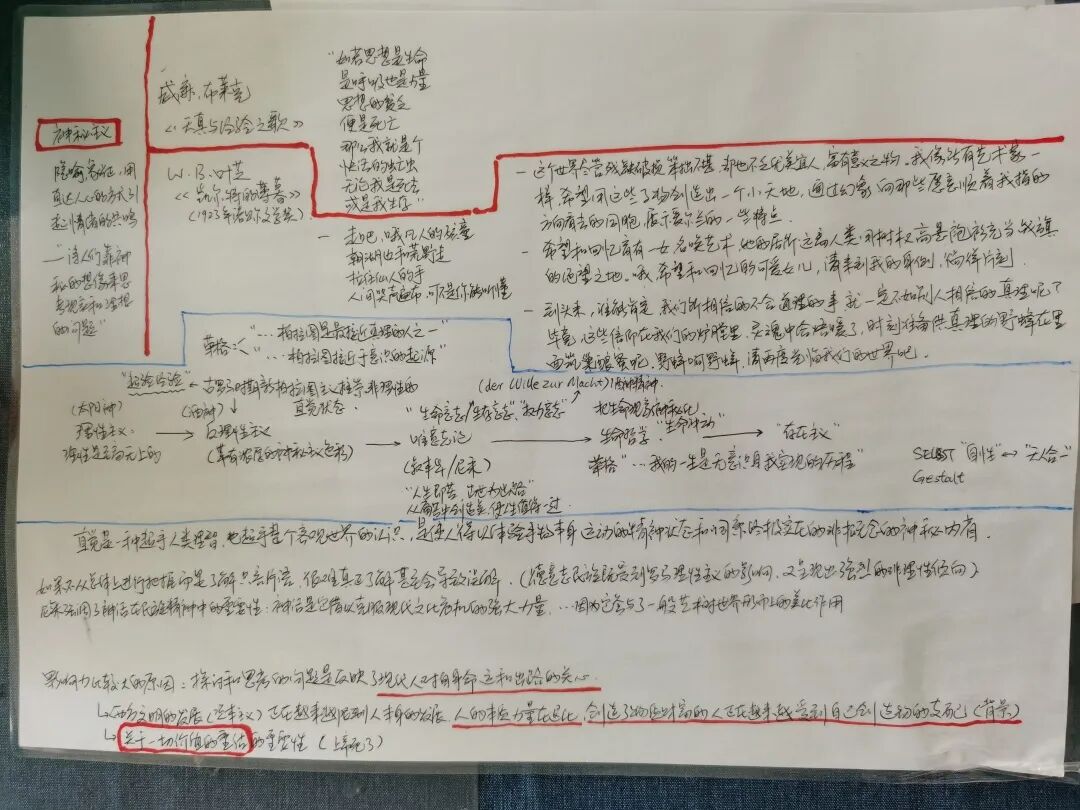 神秘主义
隐喻象征,用
直达人心的方式引
起情绪的共鸣
"诗人们靠神
秘的想像来思
考现实和理想
的问题"
威廉.布莱克
《天真与经验之歌》
W.B.叶芝
《凯尔特的薄暮》
(1923年诺贝尔文学奖)
"如若思想是生命
是呼吸也是力量
思想的贫乏
便是死亡
那么我就是个
快活的牤虫
无论我是死去
或是我生存"
- 走吧,哦凡人的孩童
朝湖边和荒野走
拉住仙人的手
人间哭声遍布,可不是你能听懂
- 这个世界尽管残缺破损 笨拙不堪 却也不乏优美宜人、富有意义之物。我像所有艺术家一
样,希望用这些事物创造出一个小天地,通过幻象向那些愿意顺着我指的
方向看去的同胞,展示爱尔兰的一些特点.
- 希望和回忆育有一女名唤艺术,她的居所远离人类用树杈高悬袍衫充当战旗
的绝望之地。哦,希望和回忆的可爱女儿,请来到我的身侧,徜徉片刻.
- 到头来,谁能肯定 我们所相信的不合道理的事就一定不如别人相信的真理呢?
毕竟,这些信仰在我们的炉膛里、灵魂中已焐暖了,时刻准备供真理的野蜂在里
面筑巢酿蜜呢。野蜂啊野蜂,请再度光临我们的世界吧。
荣格:"…柏拉图是最接近真理的人之一"
"…柏拉图执于意识的起源"
"超验经验" ← 古罗马时期新柏拉图主义推崇非理性的
直觉状态.
(太阳神)
理性主义.
理性是至高无上的
→
(酒神)↓
反理性主义
(带有浓厚的神秘主义色彩)
→
"生命意志/生存意志""权力意志"
(der Wille zur Macht)酒神精神.
唯意志论
(叔本华/尼采)
"人生即苦,正也为此"
从痛苦中创造美,使人生值得一过
→
把生命现象神秘化
生命哲学."生命冲动"
荣格"…我的一生是无意识自我实现的历程"
→
"存在主义"
SELBST "自性"↔"天人合一"
Gestalt
直觉是一种超乎人类理智,也超乎整个客观世界的认识,是使人得以体验事物本身运动的精神状态和同所的极实在的非概念的神秘内省.
如果不从总体上进行把握而是了解只言片语 很难真正了解甚至会导致误解.(德意志民族既受到
理性主义的影响,又呈现出强烈的非理性倾向)
尼采强调了神话在民族精神中的重要性:神话是它借以克服现代文化危机的强大力量,…因为它参与了一般艺术对世界形而上的美化作用
影响力比较大的原因:探讨和思考的问题是反映了现代人对自身命运和出路的关心.
↳西方文明的发展(资本主义)正在越来越限制人本身的发展,人的本能力量在退化,创造了物质财富的人正在越来越受到自己创造物的支配(背景)
↳关于一切价值的重估的重要性(上帝死了)